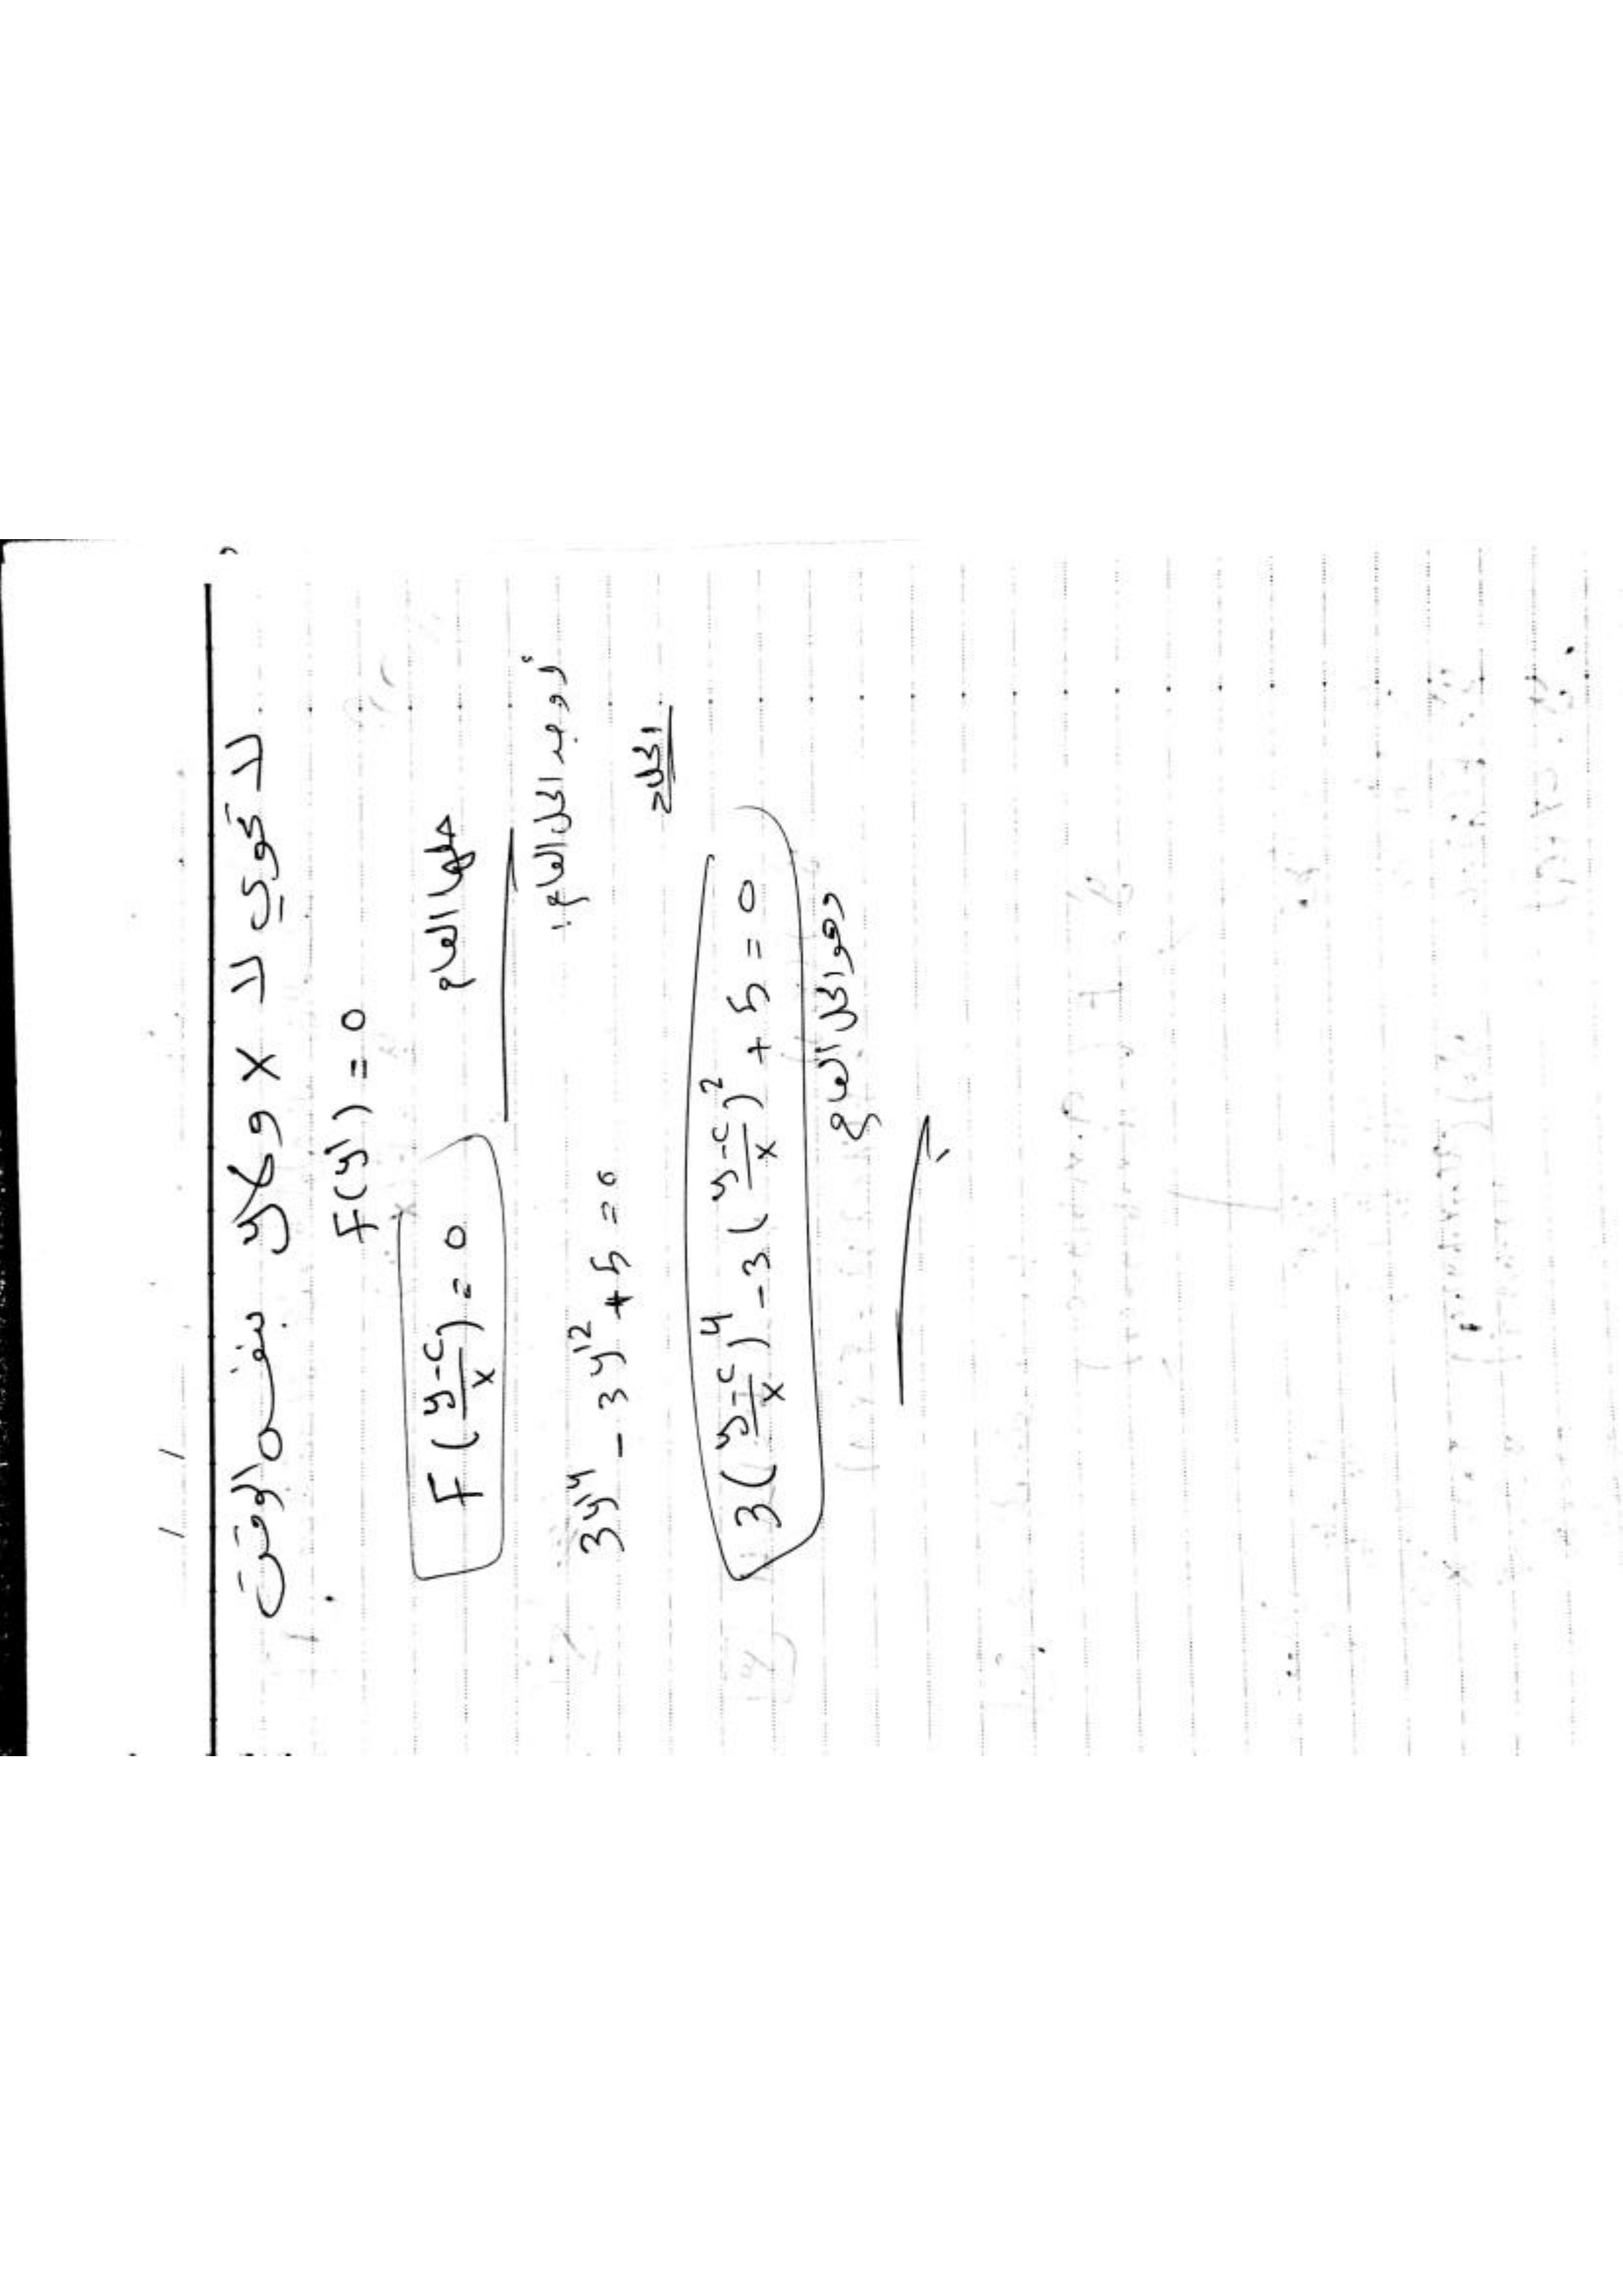 / /
لا تحوي لا x ولا y بنفس الوقت
F(y') = 0
حلها العام
F(\frac{y-c}{x}) = 0
أوجد الحل العام:
3y'^4 - 3y'^2 + 5 = 0
الحل
3(\frac{y-c}{x})^4 - 3(\frac{y-c}{x})^2 + 5 = 0
وهو الحل العام